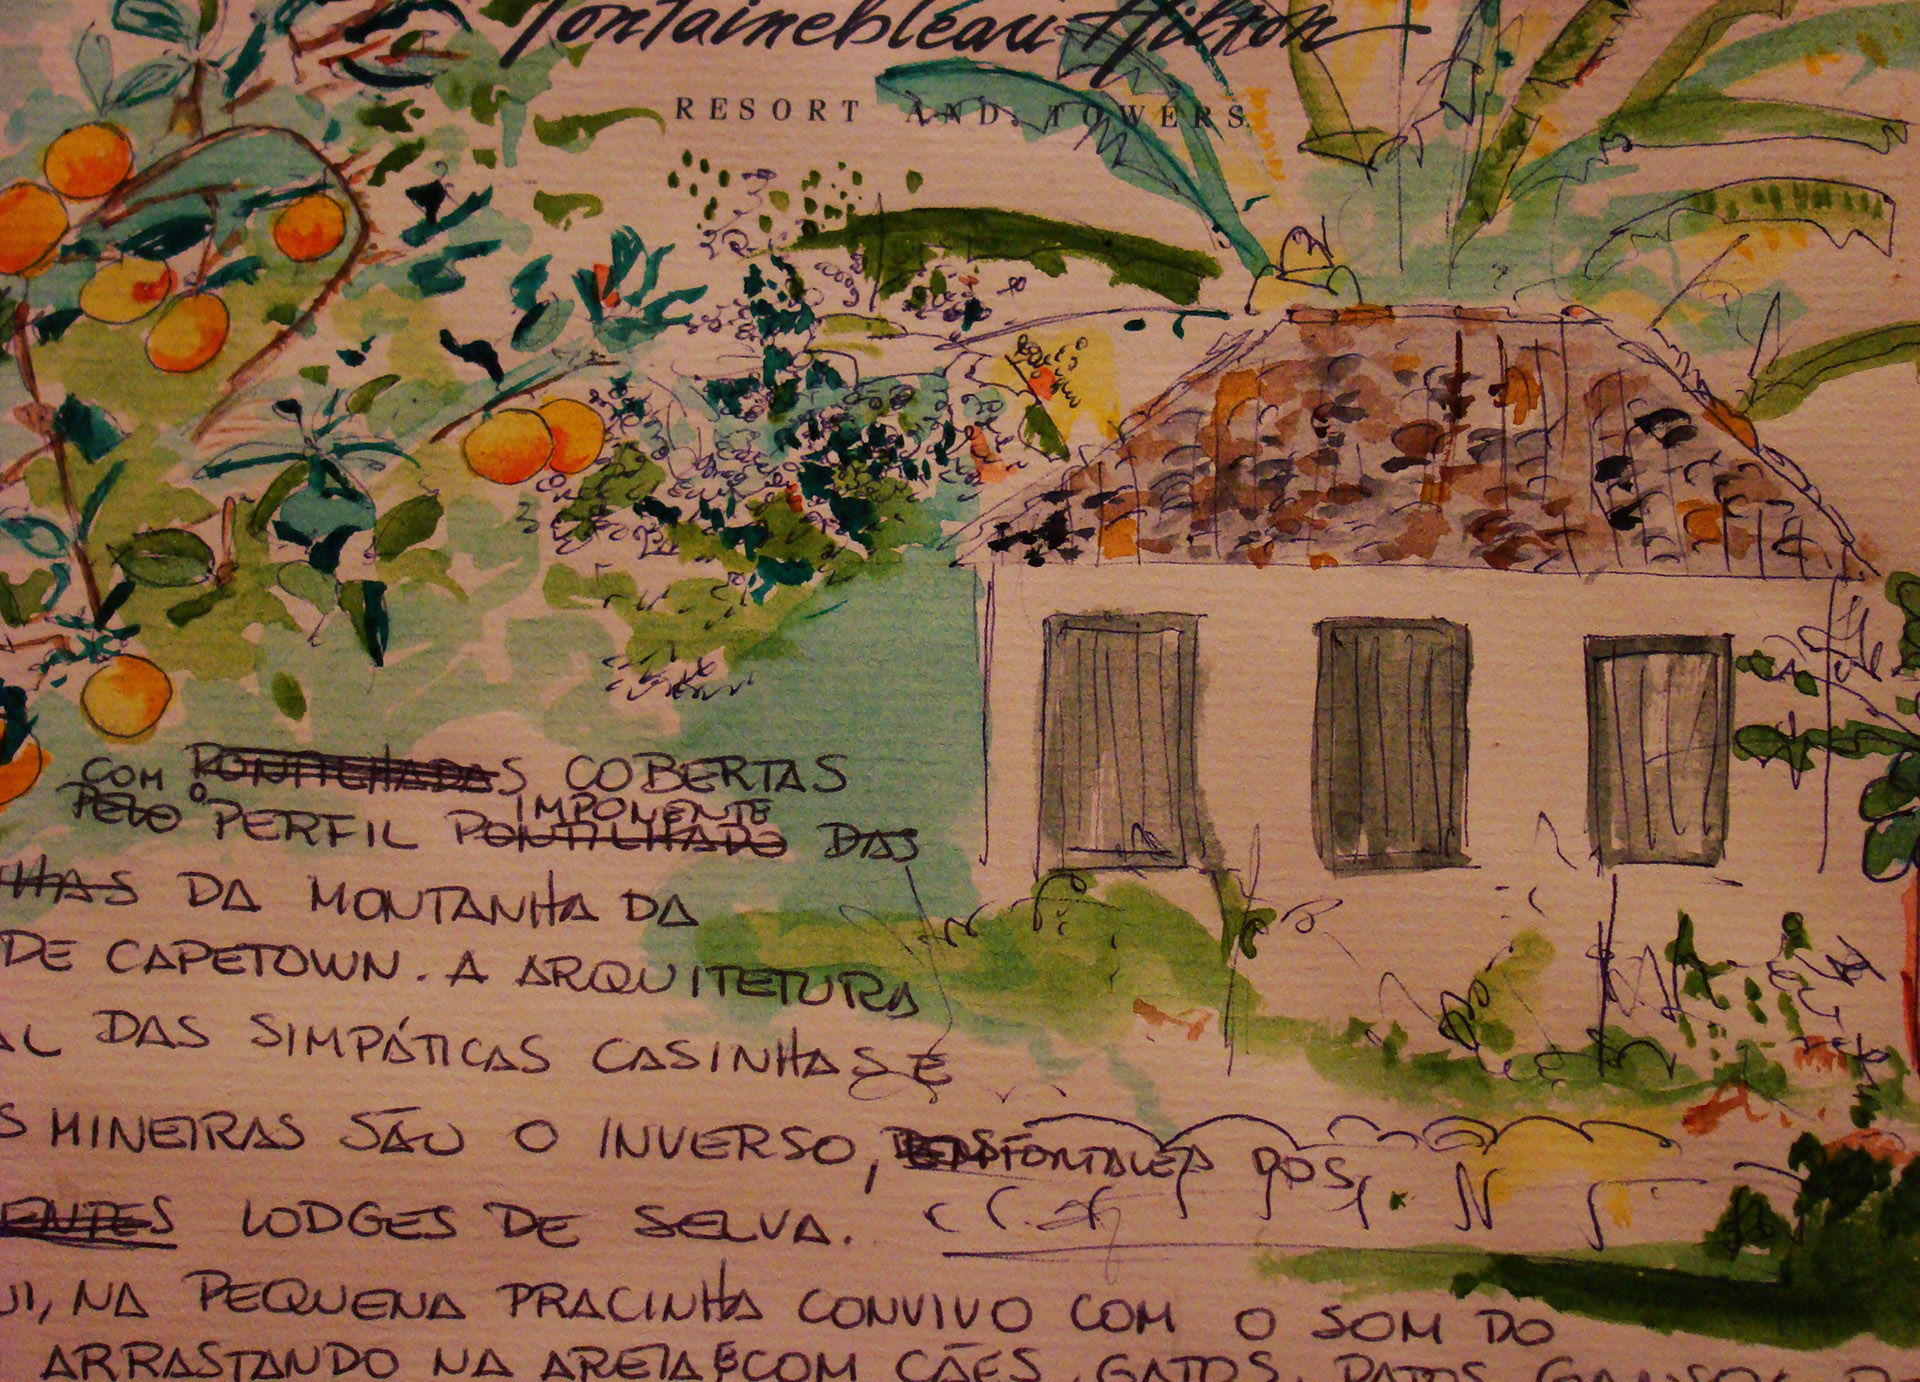 Fontainebleau Hilton
RESORT AND TOWERS
COM PONTILHADAS COBERTAS
PELO O IMPONENTE
PERFIL PONTILHADO DAS
HAS DA MONTANHA DA
DE CAPETOWN. A ARQUITETURA
AL DAS SIMPÁTICAS CASINHAS E
S MINEIRAS SÃO O INVERSO, FORTALEZA DOS
ENTES LODGES DE SELVA.
UI, NA PEQUENA PRACINHA CONVIVO COM O SOM DO
ARRASTANDO NA AREIA E COM CÃES, GATOS, PATOS, GANSOS,